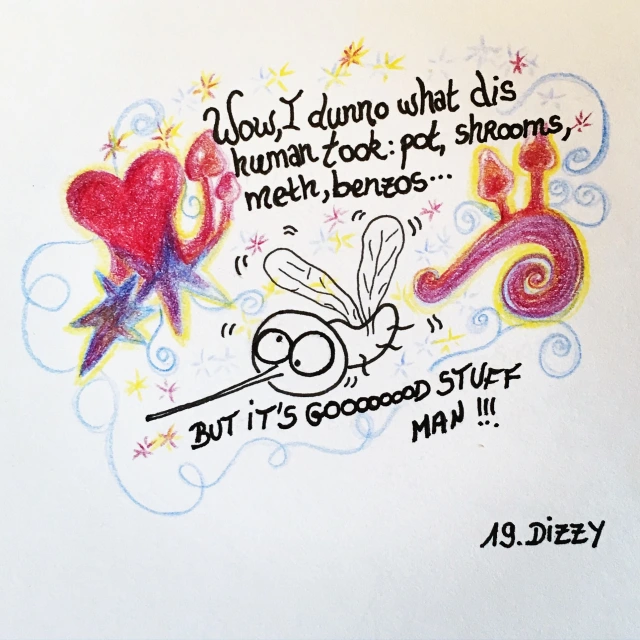 Wow, I dunno what dis
human took: pot, shrooms,
meth, benzos...
BUT iT'S GOOOOOOOOD STUFF
MAN !!!
19. DiZZY